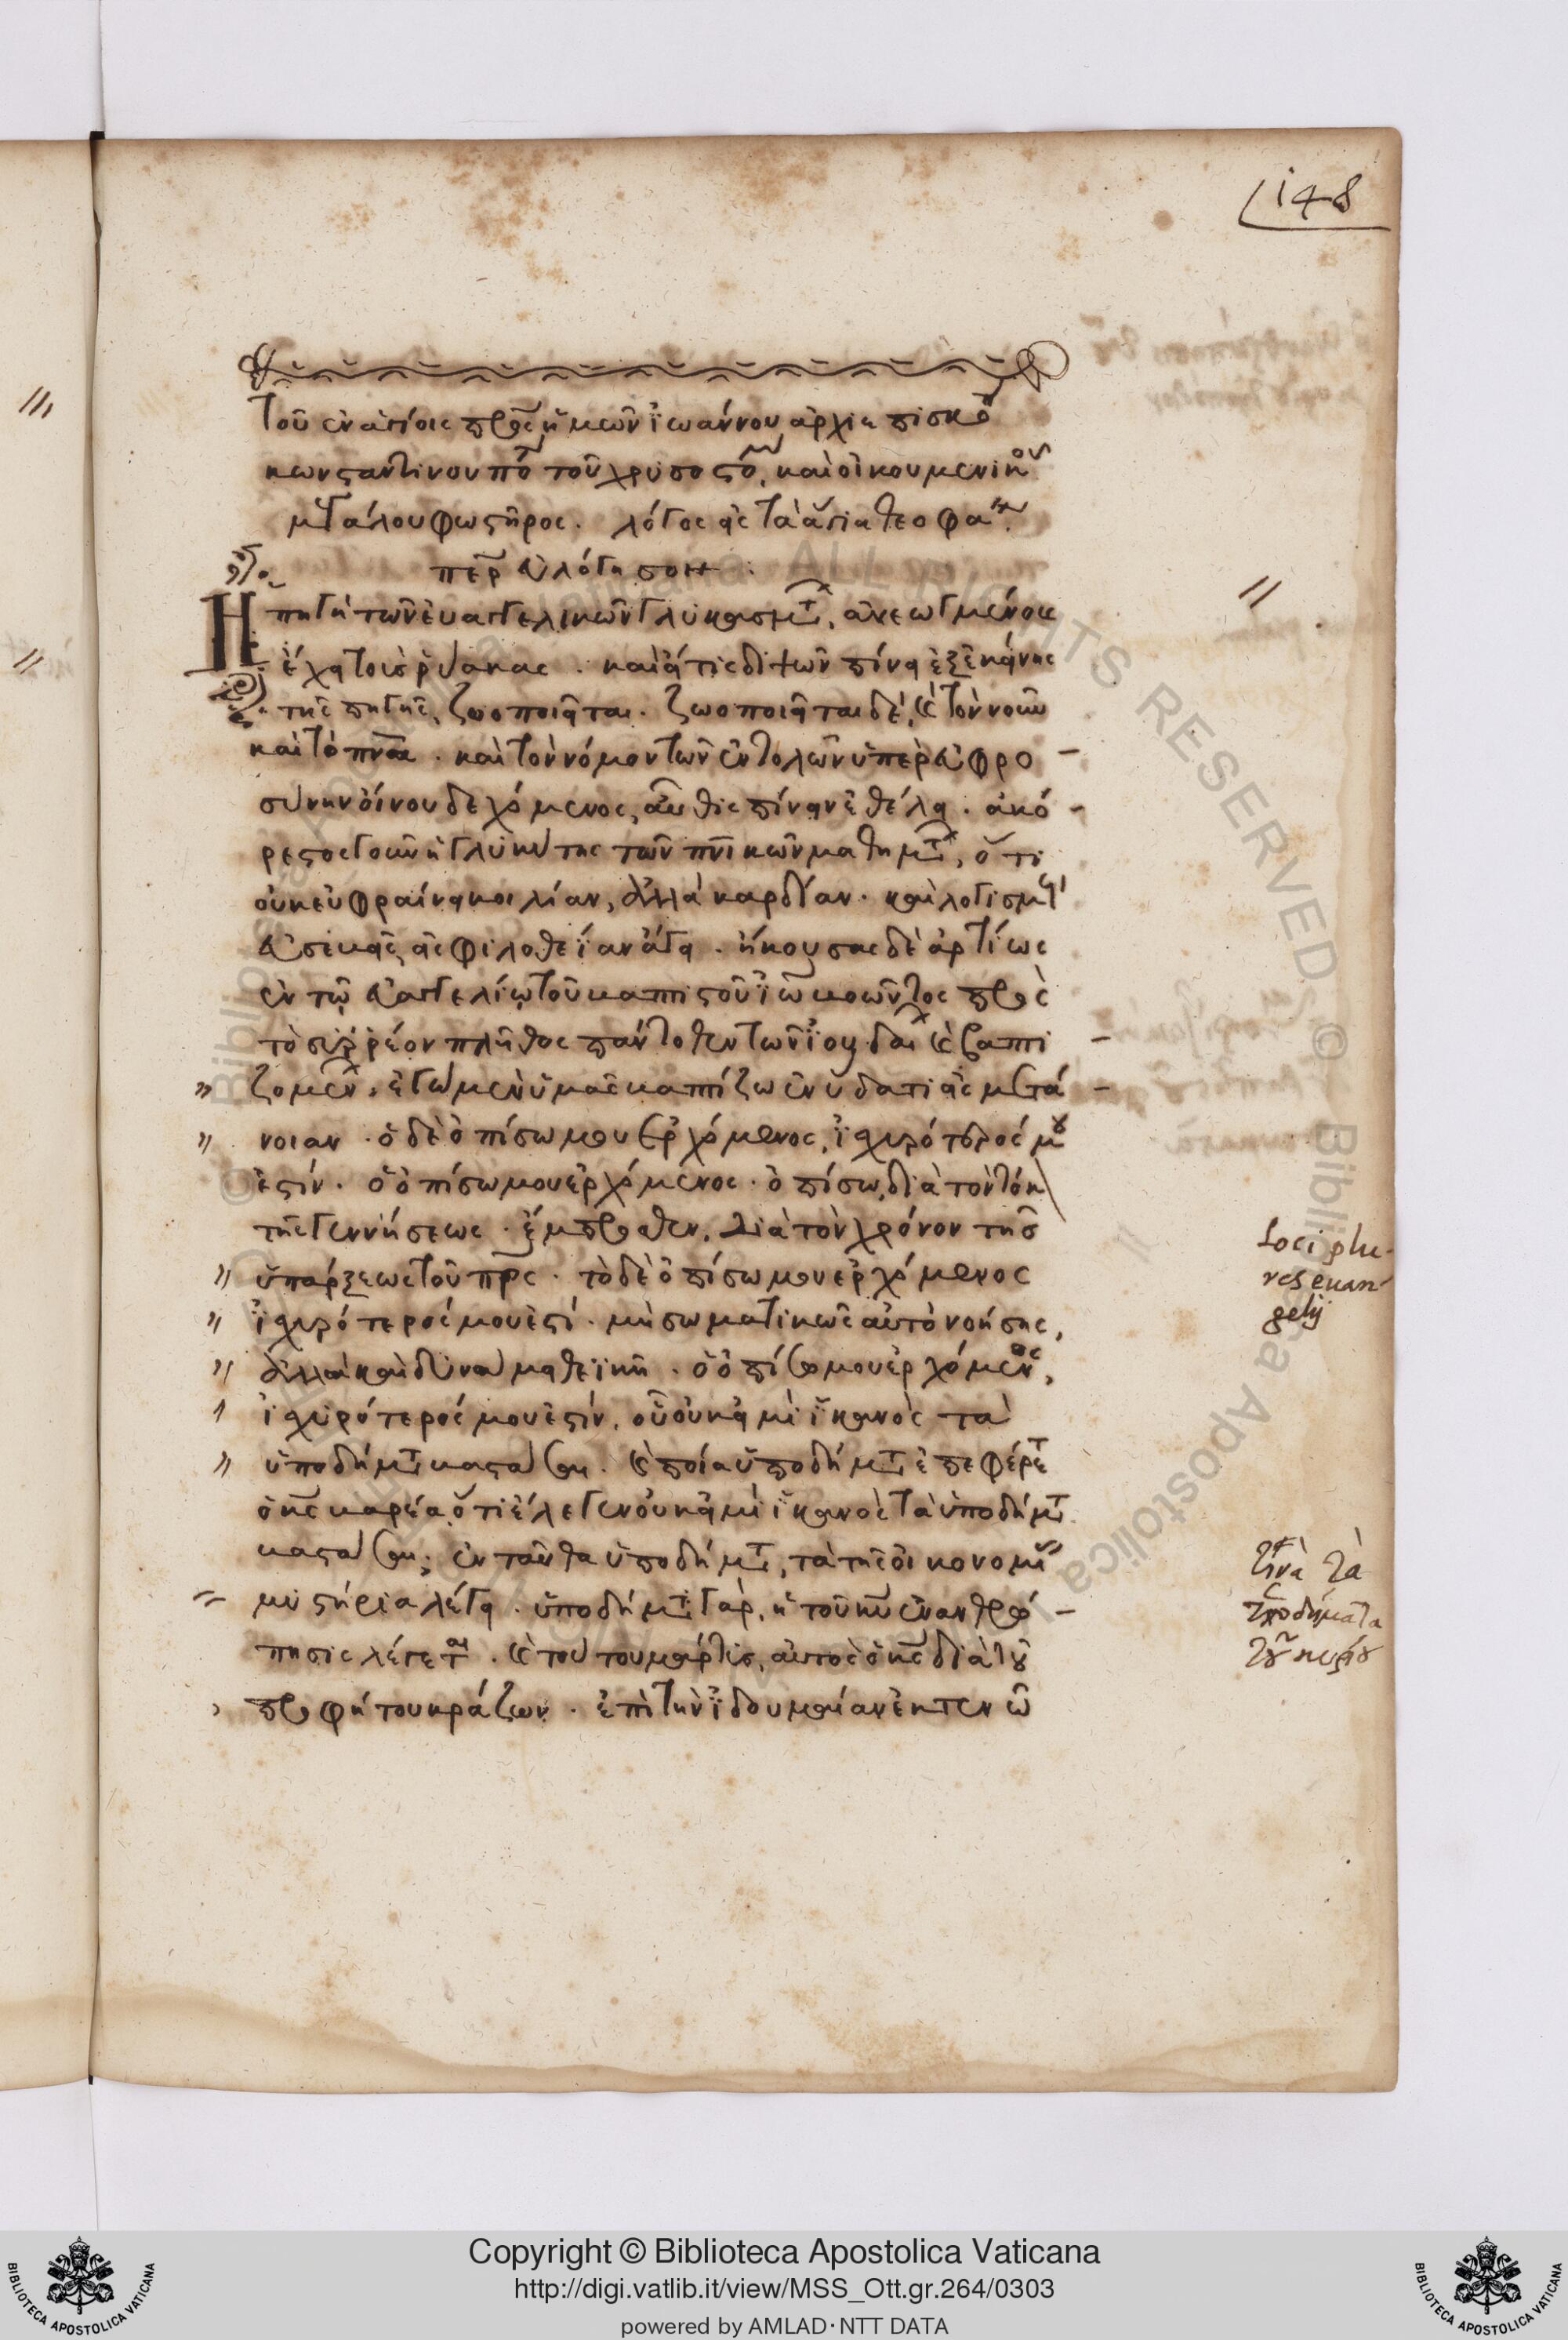 148
Τοῦ ἐν ἁγίοις πρ(ς) ἡμῶν ἰωάννου ἀρχιεπισκό
κωνσταντινουπό τοῦ χρυσοστό, καὶ οἰκουμενικοῦ
μεγάλου φωστῆρος. λόγος εἰς τὰ ἅγια θεοφα
περ εὐλόγησον
Ἡ πηγὴ τῶν εὐαγγελικῶν γλυκασμάτ, ἀνεωγμένους
ἔχει τοὺς ῥύακας. καὶ εἴ τις διψῶν πίνει ἐξ ἐκείνης
τῆς πηγῆς, ζωοποιεῖται. ζωοποιεῖται δὲ, καὶ τὸν νοῦν
καὶ τὸ πνα. καὶ τὸν νόμον τῶν ἐντολῶν ὑπὲρ εὐφρο
σύνην οἴνου δεχόμενος, αὖθις πίνειν ἐθέλει. ἀκό
ρεστος γοῦν ἡ γλυκύτης τῶν πνικῶν μαθημάτ, ὅτι
οὐκ εὐφραίνει κοιλίαν, ἀλλὰ καρδίαν. καὶ λογισμ
εὐσεβεῖς εἰς φιλοθεΐαν ἄγει. ἤκουσας δὲ ἀρτίως
ἐν τῷ εὐαγγελίῳ τοῦ βαπτιστοῦ ἰω βοῶντος πρὸς
τὸ συρρέον πλῆθος πάντοθεν τῶν ἰουδαί καὶ βαπτι
ζομέν, ἐγὼ μὲν ὑμᾶς βαπτίζω ἐν ὕδατι εἰς μετά
νοιαν. ὁ δὲ ὀπίσω μου ἐρχόμενος, ἰσχυρότερός μου
ἐστίν. ὁ ὀπίσω μου ἐρχόμενος. ὀπίσω, διὰ τὸν τόκ
τῆς γεννήσεως. ἔμπροσθεν, διὰ τὸν χρόνον τῆς
ὑπάρξεως τοῦ πρς. τὸ δὲ ὀπίσω μου ἐρχόμενος
ἰσχυρότερός μου ἐστί. μὴ σωματικῶς αὐτὸ νοήσῃς,
ἀλλὰ καὶ δυνάμει θεϊκῇ. ὁ ὀπίσω μου ἐρχόμενος,
ἰσχυρότερός μου ἐστίν, οὗ οὐκ εἰμὶ ἱκανὸς τὰ
ὑποδήματ βαστάσαι. καὶ ποία ὑποδήματ ἐπεφέρετ
ὁ κς βαρέα, ὅτι ἔλεγεν οὐκ εἰμὶ ἱκανὸς τὰ ὑποδήματ
βαστάσαι; ἐνταῦθα ὑποδήματ, τὰ τῆς οἰκονομί
μυστήρια λέγει. ὑπόδημα γὰρ, ἡ τοῦ κυ ἐνανθρώ
πησις λέγεται. καὶ τούτου μάρτυς, αὐτὸς ὁ κς διὰ τοῦ
προφήτου κράζων. ἐπὶ τὴν ἰδουμαίαν ἐκτενῶ
Loci plu-
res euan-
gelij
τίνα τὰ
ὑποδήματα
τοῦ κυρίου
Copyright © Biblioteca Apostolica Vaticana
http://digi.vatlib.it/view/MSS_Ott.gr.264/0303
powered by AMLAD·NTT DATA
BIBLIOTECA APOSTOLICA VATICANA
BIBLIOTECA APOSTOLICA VATICANA